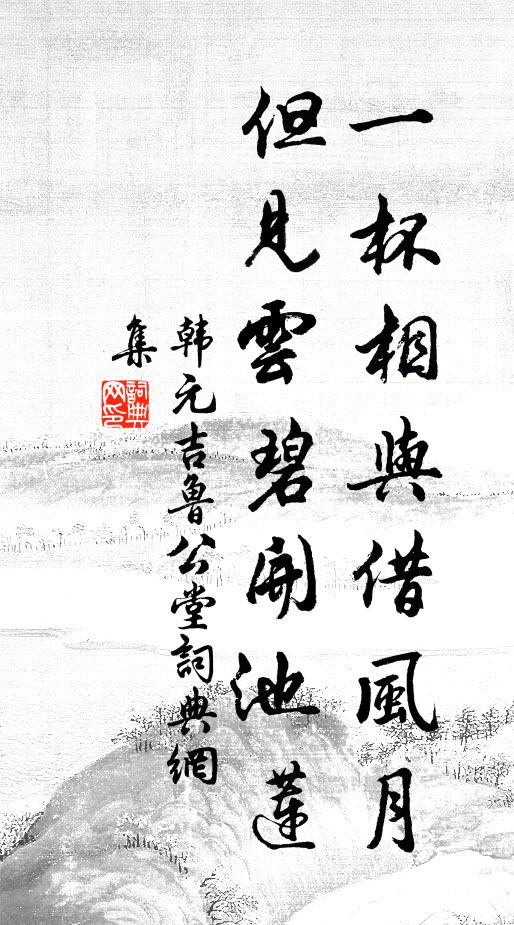 一杯相與借風月
但見雲碧開池蓮
韩元吉魯公堂詞典網
集
詞典網印